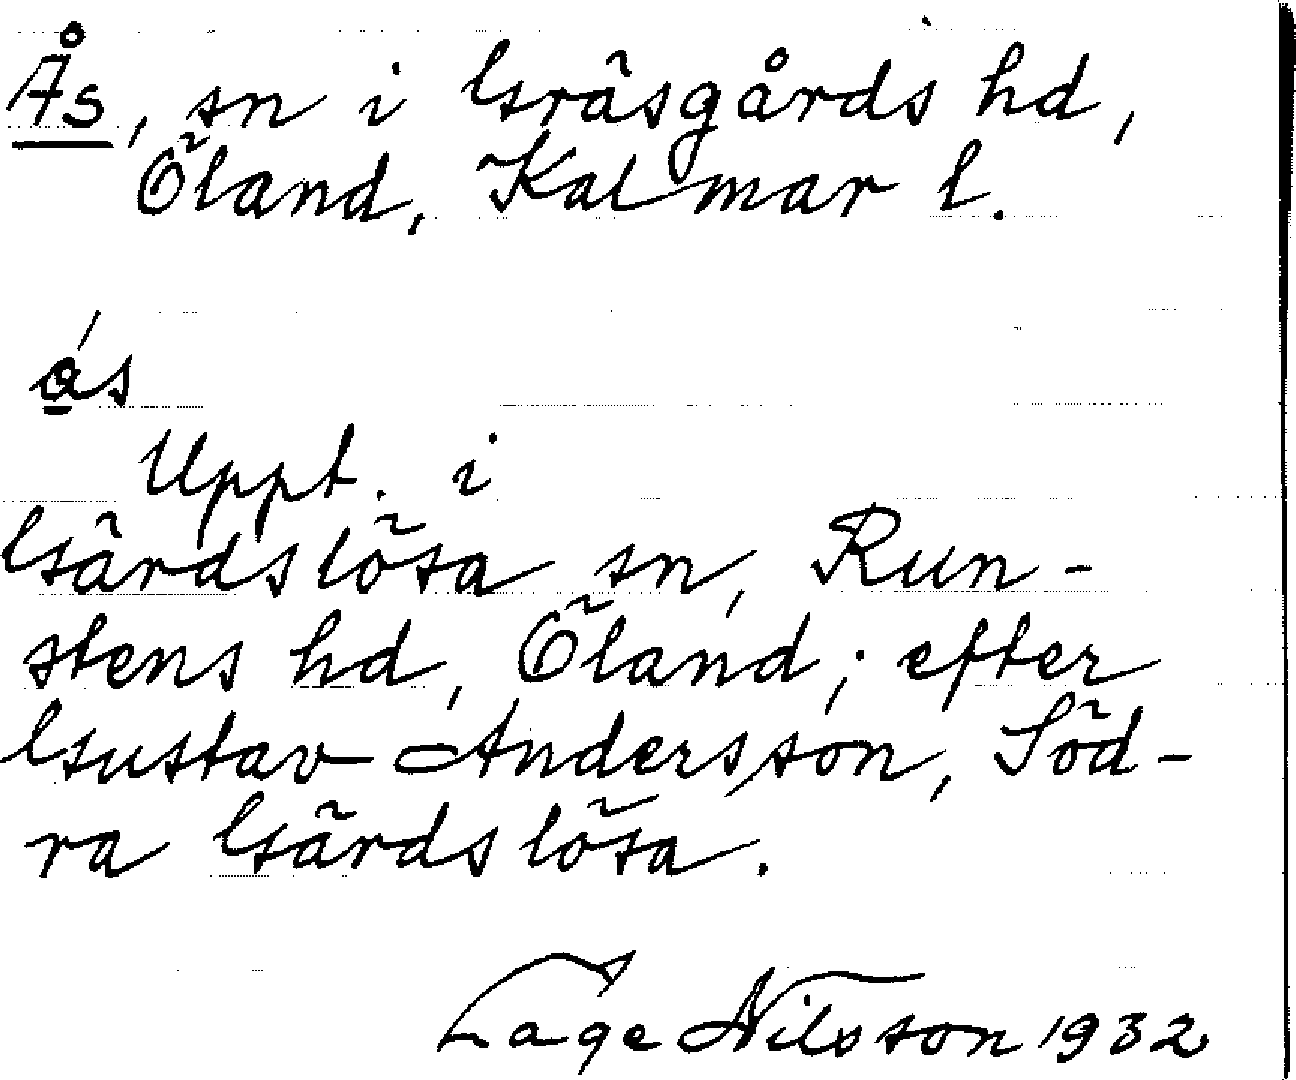 Ås, sn i Gräsgårds hd,
Öland, Kalmar l.
ás
Uppt. i
Gärdslösa sn, Run-
stens hd, Öland; efter
Gustav Andersson, Söd-
ra Gärdslösa.
Lage Nilsson 1932